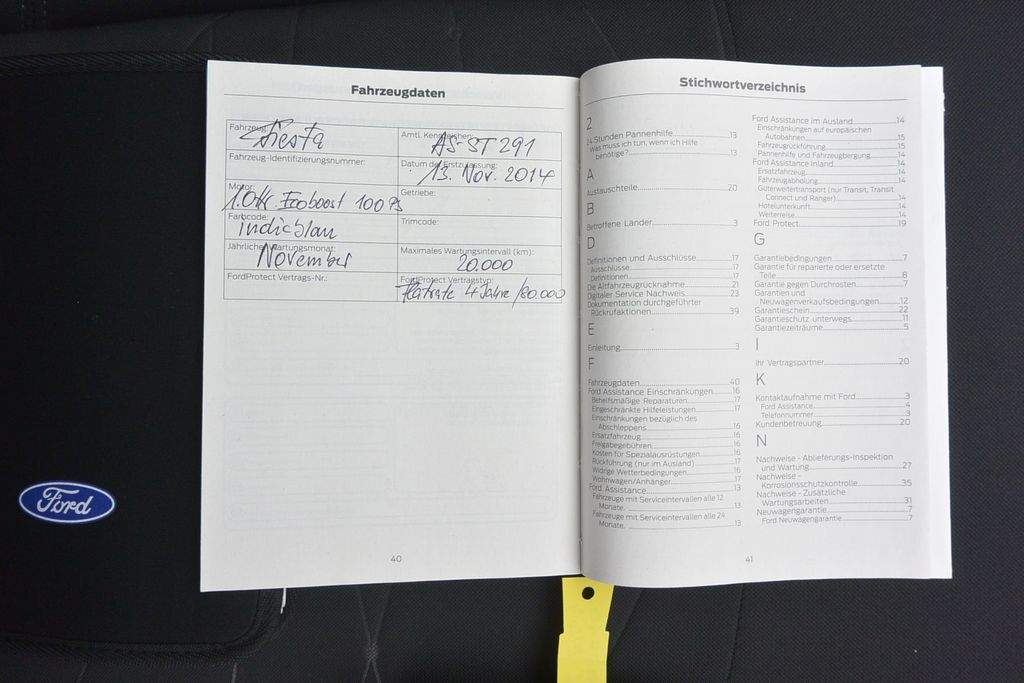 Fahrzeugdaten
Fahrzeug:
Fiesta
Amtl. Kennzeichen:
AS-ST 291
Fahrzeug-Identifizierungsnummer:
Datum der Erstzulassung:
13. Nov. 2014
Motor:
1.0 Ecoboost 100 PS
Getriebe:
Farbcode:
indicblau
Trimcode:
Jährlicher Wartungsmonat:
November
Maximales Wartungsintervall (km):
20.000
FordProtect Vertrags-Nr.:
FordProtect Vertragstyp:
Flatrate 4 Jahre /80.000
40
Ford
Stichwortverzeichnis
2
24 Stunden Pannenhilfe 13
Was muss ich tun, wenn ich Hilfe
benötige? 13
A
Austauschteile 20
B
Betroffene Länder 3
D
Definitionen und Ausschlüsse 17
Ausschlüsse 17
Definitionen 17
Die Altfahrzeugrücknahme 21
Digitaler Service Nachweis 23
Dokumentation durchgeführter
Rückrufaktionen 39
E
Einleitung 3
F
Fahrzeugdaten 40
Ford Assistance Einschränkungen 16
Behelfsmäßige Reparaturen 17
Eingeschränkte Hilfeleistungen 17
Einschränkungen bezüglich des
Abschleppens 16
Ersatzfahrzeug 16
Freigabegebühren 16
Kosten für Spezialausrüstungen 16
Rückführung (nur im Ausland) 17
Widrige Wetterbedingungen 16
Wohnwagen/Anhänger 17
Ford Assistance 13
Fahrzeuge mit Serviceintervallen alle 12
Monate. 13
Fahrzeuge mit Serviceintervallen alle 24
Monate. 13
Ford Assistance im Ausland 14
Einschränkungen auf europäischen
Autobahnen 15
Fahrzeugrückführung 15
Pannenhilfe und Fahrzeugbergung 14
Ford Assistance Inland 14
Ersatzfahrzeug 14
Fahrzeugabholung 14
Güterweitertransport (nur Transit, Transit
Connect und Ranger) 14
Hotelunterkunft 14
Weiterreise 14
Ford Protect 19
G
Garantiebedingungen 7
Garantie für reparierte oder ersetzte
Teile 8
Garantie gegen Durchrosten 7
Garantien und
Neuwagenverkaufsbedingungen 12
Garantieschein 22
Garantieschutz unterwegs 11
Garantiezeiträume 5
I
Ihr Vertragspartner 20
K
Kontaktaufnahme mit Ford 3
Ford Assistance 4
Telefonnummer 3
Kundenbetreuung 20
N
Nachweise - Ablieferungs-Inspektion
und Wartung 27
Nachweise -
Korrosionsschutzkontrolle 35
Nachweise - Zusätzliche
Wartungsarbeiten 31
Neuwagengarantie 7
Ford Neuwagengarantie 7
41